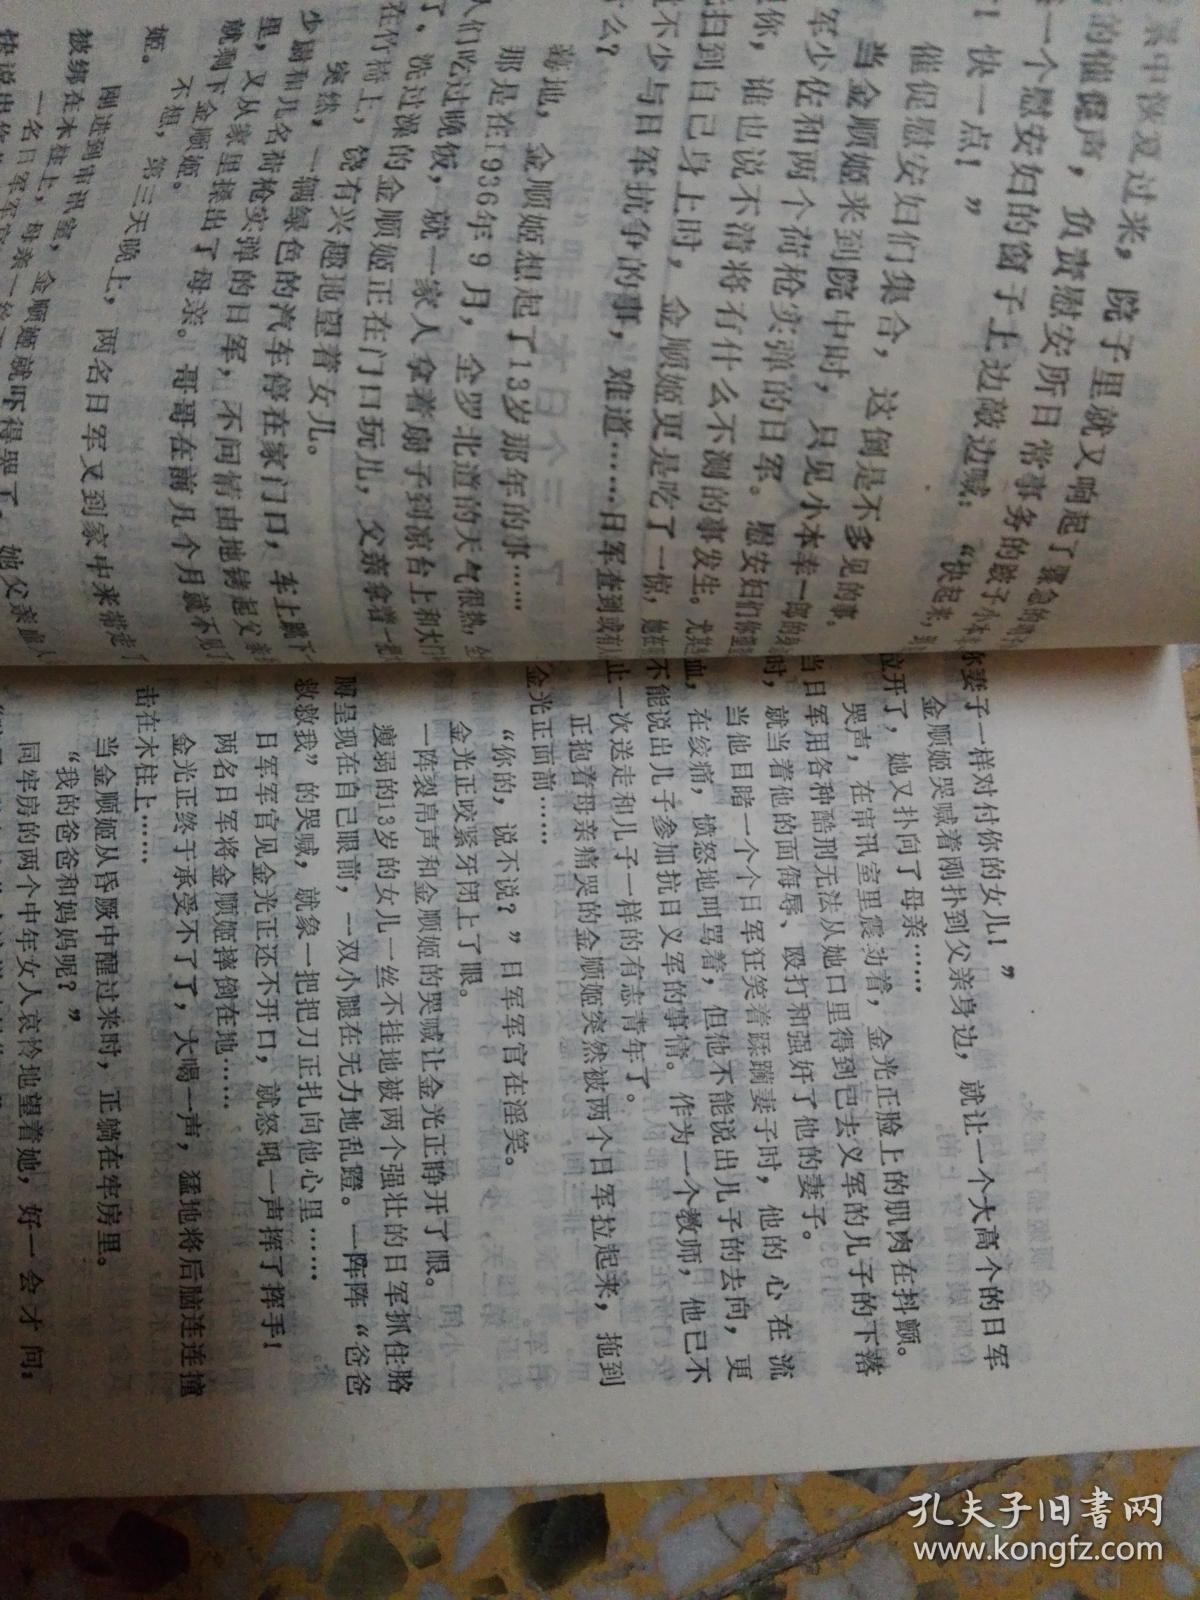 累中恢复过来，院子里就又响起了紧急的
的催促声，负责慰安所日常事务的
一个慰安妇的窗子上边敲边喊：“快起来，
！快一点！”
催促慰安妇们集合，这倒是不多见的事。
当金顺姬来到院中时，只见小本幸一郎的
军少佐和两个荷枪实弹的日军。慰安妇们
你，谁也说不清将有什么不测的事发生。尤其
归到自己身上时，金顺姬更是吃了一惊，她在
不少与日军抗争的事，难道……日军查到
什么？
蓦地，金顺姬想起了13岁那年的事……
那是在1936年9月，全罗北道的天气很热，
人们吃过晚饭，就一家人拿着扇子到凉台上和大门
了，洗过澡的金顺姬正在门口玩儿，父亲拿着一
在竹椅上，饶有兴趣地望着女儿。
突然，一辆绿色的汽车停在家门口，车上跳下
少尉和几名荷枪实弹的日军，不问情由地铐起父
里，又从家里搡出了母亲。哥哥在前几个月就不见了
就剩下金顺姬。
不想，第三天晚上，两名日军又到家中来带走了
姬。
刚进到审讯室，金顺姬就吓得哭了。她父亲
被绑在木柱上，母亲一丝
一名日军军官
妻子一样对付你的女儿！”
金顺姬哭喊着刚扑到父亲身边，就让一个大高个的日军
拉开了，她又扑向了母亲……
哭声，在审讯室里震动着，金光正脸上的肌肉在抖颤。
当日军用各种酷刑无法从她口里得到已去义军的儿子的下落
时，就当着他的面侮辱、殴打和强奸了他的妻子。
当他目睹一个个日军狂笑着蹂躏妻子时，他的心在流
血，在绞痛，愤怒地叫骂着，但他不能说出儿子的去向，更
不能说出儿子参加抗日义军的事情。作为一个教师，他已不
止一次送走和儿子一样的有志青年了。
正抱着母亲痛哭的金顺姬突然被两个日军拉起来，拖到
金光正面前……
“你的，说不说？”日军军官在淫笑。
金光正咬紧牙闭上了眼。
一阵裂帛声和金顺姬的哭喊让金光正睁开了眼。
瘦弱的13岁的女儿一丝不挂地被两个强壮的日军抓住胳
膊呈现在自己眼前，一双小腿在无力地乱蹬。一阵阵“爸爸
救救我”的哭喊，就象一把把刀正扎向他心里……
日军军官见金光正还不开口，就怒吼一声挥了挥手！
两名日军将金顺姬摔倒在地……
金光正终于承受不了了，大喝一声，猛地将后脑连连撞
击在木柱上……
当金顺姬从昏厥中醒过来时，正躺在牢房里。
“我的爸爸和妈妈呢？”
同牢房的两个中年女人哀怜地望着她，好一会才问：
孔夫子旧书网
www.kongfz.com